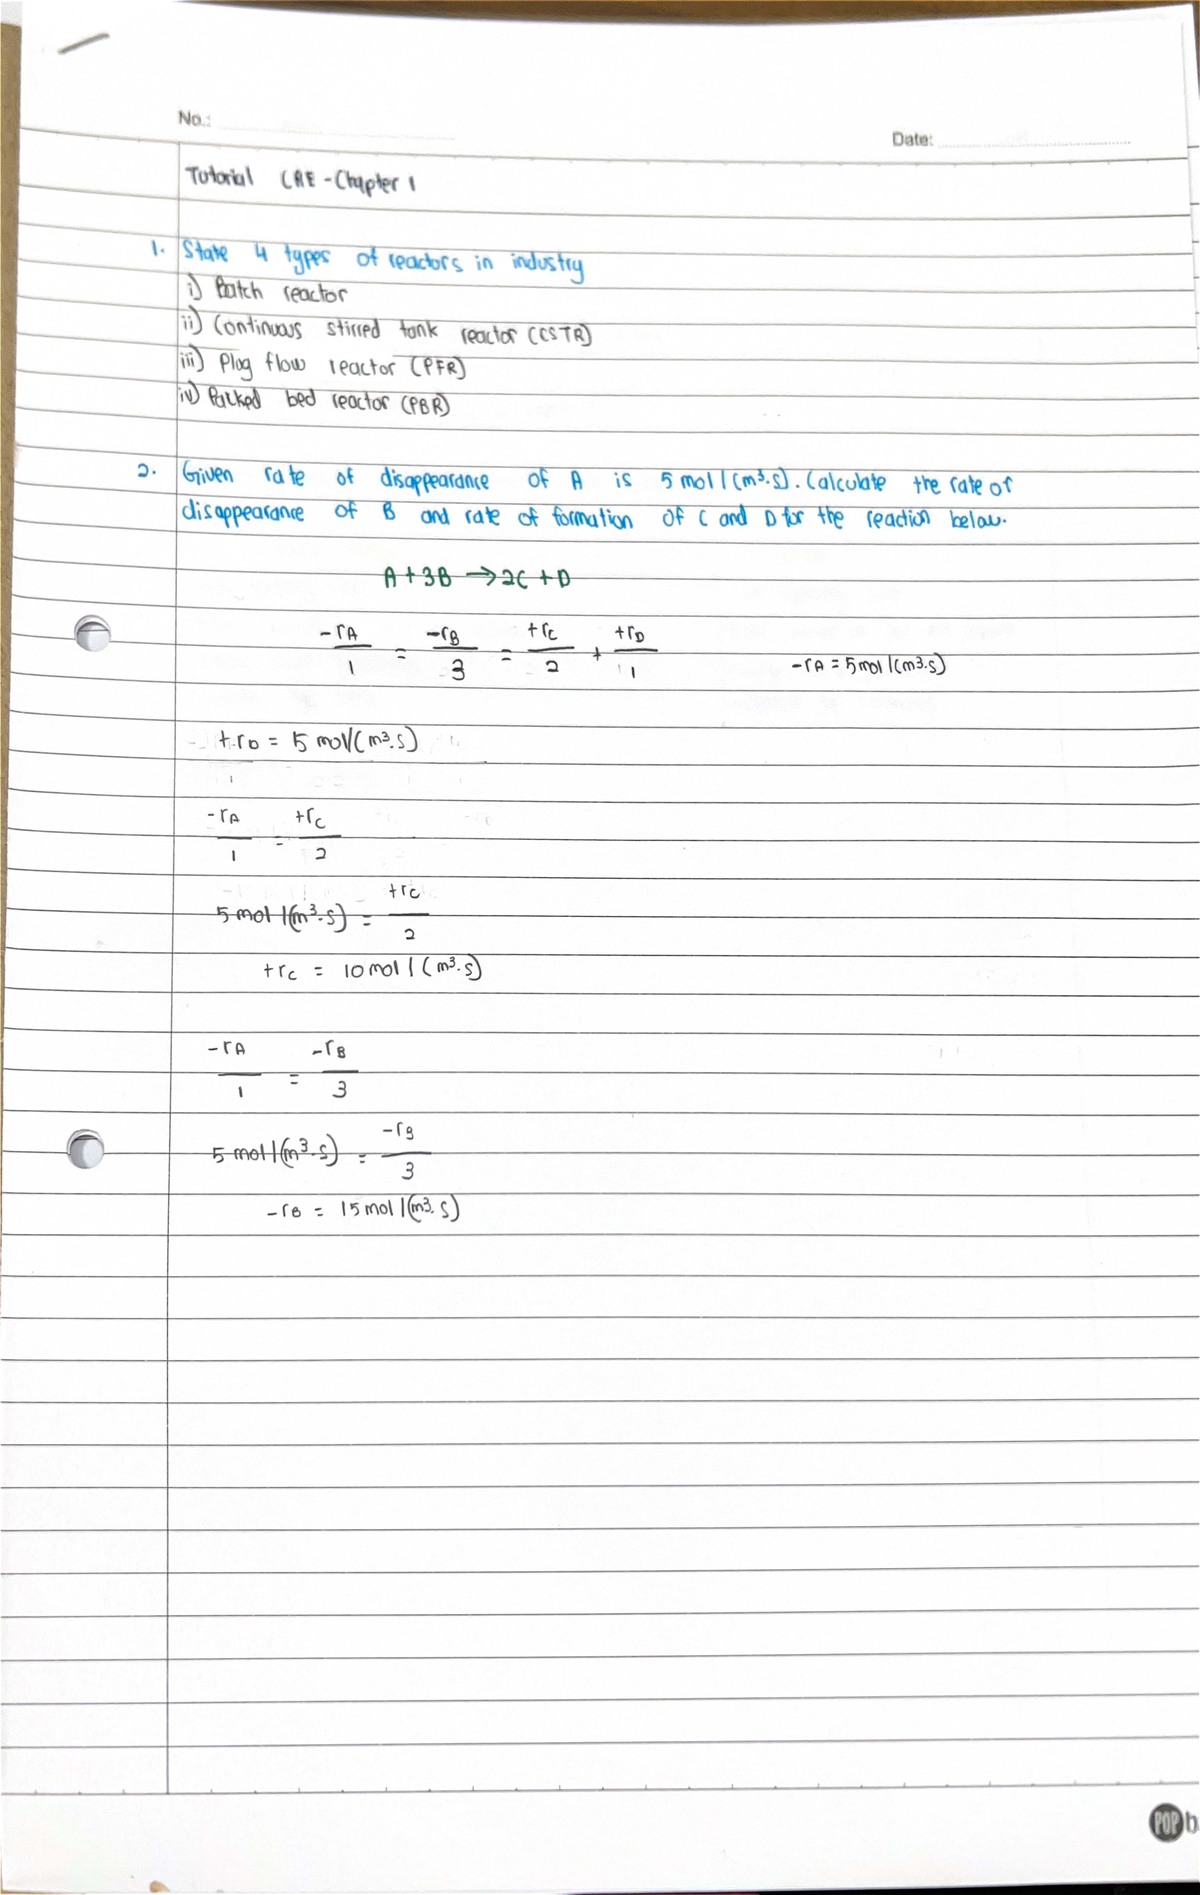 No.:
Date:
Tutorial CRE - Chapter 1
1. State 4 types of reactors in industry
i) Batch reactor
ii) Continuous stirred tank reactor (CSTR)
iii) Plug flow reactor (PFR)
iv) Packed bed reactor (PBR)
2. Given rate of disappearance of A is 5 mol/(m³.s). Calculate the rate of
disappearance of B and rate of formation of C and D for the reaction below.
A + 3B → 2C + D
-rA/1 = -rB/3 = +rC/2 + +rD/1
-rA = 5 mol/(m³.s)
+rD = 15 mol/(m³.s)
-rA/1 = +rC/2
5 mol/(m³.s) = +rC/2
+rC = 10 mol/(m³.s)
-rA/1 = -rB/3
5 mol/(m³.s) = -rB/3
-rB = 15 mol/(m³.s)
POP b